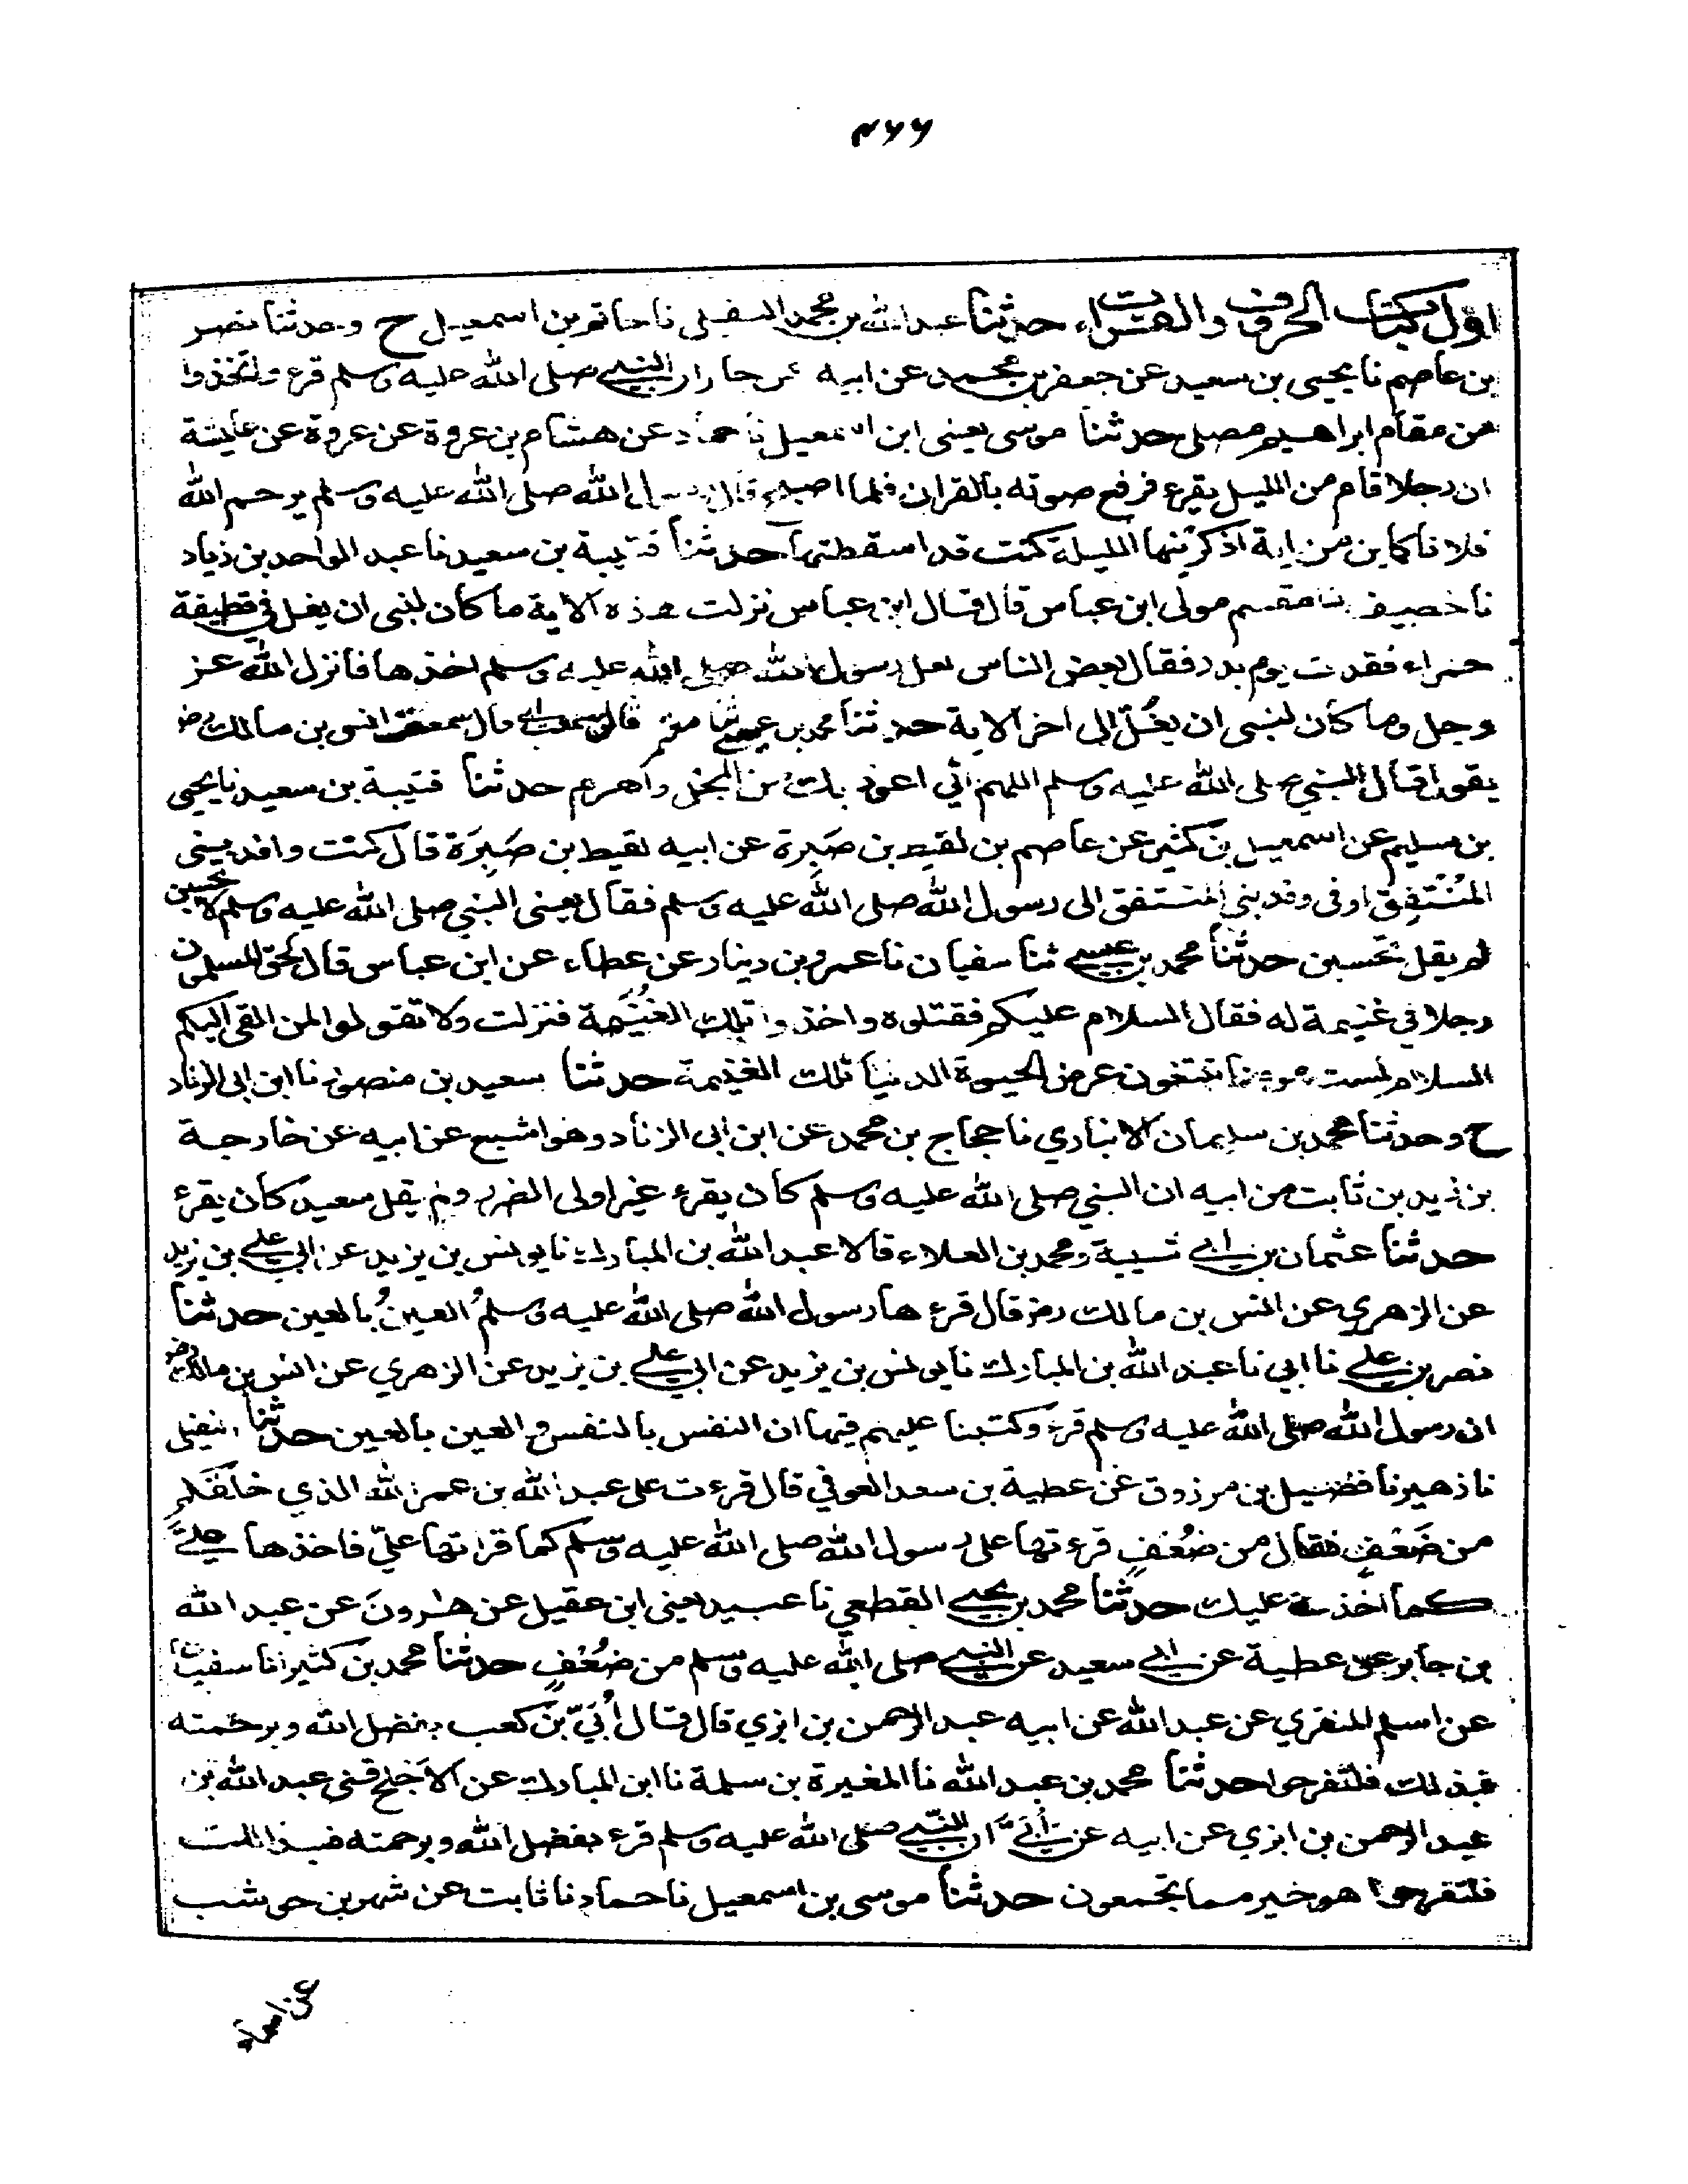 ٤٦٦
اول كتاب الحروف والقراءت حدثنا عبد الله بن محمد النفيلى نا حاتم بن اسمعيل ح وحدثنا نصر
بن عاصم نا يحيى بن سعيد عن جعفر بن محمد عن ابيه عن جابر ان النبي صلى الله عليه وسلم قرء واتخذوا
من مقام ابراهيم مصلى حدثنا موسى يعنى ابن اسمعيل نا حماد عن هشام بن عروة عن عروة عن عايشة
ان رجلا قام من الليل يقرء فرفع صوته بالقران فلما اصبح قال رسول الله صلى الله عليه وسلم يرحم الله
فلانا كاين من اية اذكرنيها الليلة كنت قد اسقطتها حدثنا قتيبة بن سعيد نا عبد الواحد بن زياد
نا خصيف نا مقسم مولى ابن عباس قال قال ابن عباس نزلت هذه الاية ما كان لنبى ان يغل في قطيفة
حمراء فقدت يوم بدر فقال بعض الناس لعل رسول الله صلى الله عليه وسلم اخذها فانزل الله عز
وجل وما كان لنبى ان يغُلّ الى اخر الاية حدثنا محمد بن عيسى ثنا معتمر قال سمعت ابي قال سمعت انس بن مالك رضـ
يقول قال النبي صلى الله عليه وسلم اللهم اني اعوذ بك من البخل واهرم حدثنا قتيبة بن سعيد نا يحيى
بن سليم عن اسمعيل بن كثير عن عاصم بن لقيط بن صَبِرة عن ابيه لقيط بن صَبِرَة قال كنت وافد بنى
المُنْتَفِق او فى وفد بني المنتفق الى رسول الله صلى الله عليه وسلم فقال يعنى النبي صلى الله عليه وسلم لا تحسِبن
لم يقل تحَسبن حدثنا محمد بن عيسى ثنا سفيان نا عمرو بن دينار عن عطاء عن ابن عباس قال لحق المسلمون
رجلا في غنيمة له فقال السلام عليكم فقتلوه واخذوا تلك الغُنَيْمة فنزلت ولا تقولوا لمن القى اليكم
السلام لست مومنا تبتغون عرض الحيوة الدنيا تلك الغنيمة حدثنا سعيد بن منصور نا ابن ابى الزناد
ح وحدثنا محمد بن سليمان الانباري نا حجاج بن محمد عن ابن ابى الزناد وهو اشبع عن ابيه عن خارجة
بن زيد بن ثابت عن ابيه ان النبي صلى الله عليه وسلم كان يقرء غير اولى الضرر ولم يقل سعيد كان يقرء
حدثنا عثمان بن ابي شيبة ومحمد بن العلاء قالا عبد الله بن المبارك نا يونس بن يزيد عن ابي علي بن يزيد
عن الزهري عن انس بن مالك رضـ قال قرءها رسول الله صلى الله عليه وسلم العينُ بالعين حدثنا
نصر بن علي نا ابي نا عبد الله بن المبارك نا يونس بن يزيد عن ابي علي بن يزيد عن الزهري عن انس بن مالك رضـ
ان رسول الله صلى الله عليه وسلم قرء وكتبنا عليهم فيها ان النفس بالنفس والعين بالعين حدثنا النفيلى
نا زهير نا فضيل بن مرزوق عن عطية بن سعد العوفي قال قرءت على عبد الله بن عمر الله الذي خلقكم
من ضَعْفٍ فقال من ضُعْفٍ قرءتها على رسول الله صلى الله عليه وسلم كما قراتها عليّ فاخذها علي
كما اخذت عليك حدثنا محمد بن يحيى القطعي نا عبيد يعنى ابن عقيل عن هارون عن عبد الله
بن جابر عن عطية عن ابي سعيد عن النبي صلى الله عليه وسلم من ضُعْفٍ حدثنا محمد بن كثير انا سفيان
عن اسلم المنقري عن عبد الله عن ابيه عبد الرحمن بن ابزي قال قال اُبَيّ بن كعب بفضل الله وبرحمته
فبذلك فلتفرحوا حدثنا محمد بن عبد الله نا المغيرة بن سلمة نا ابن المبارك عن الاجلح ثنى عبد الله بن
عبد الرحمن بن ابزي عن ابيه عن اُبَيّ ان النبي صلى الله عليه وسلم قرء بفضل الله وبرحمته فبذلك
فلتفرحوا هو خير مما تجمعون حدثنا موسى بن اسمعيل نا حماد نا ثابت عن شهر بن حوشب
عن اسماء